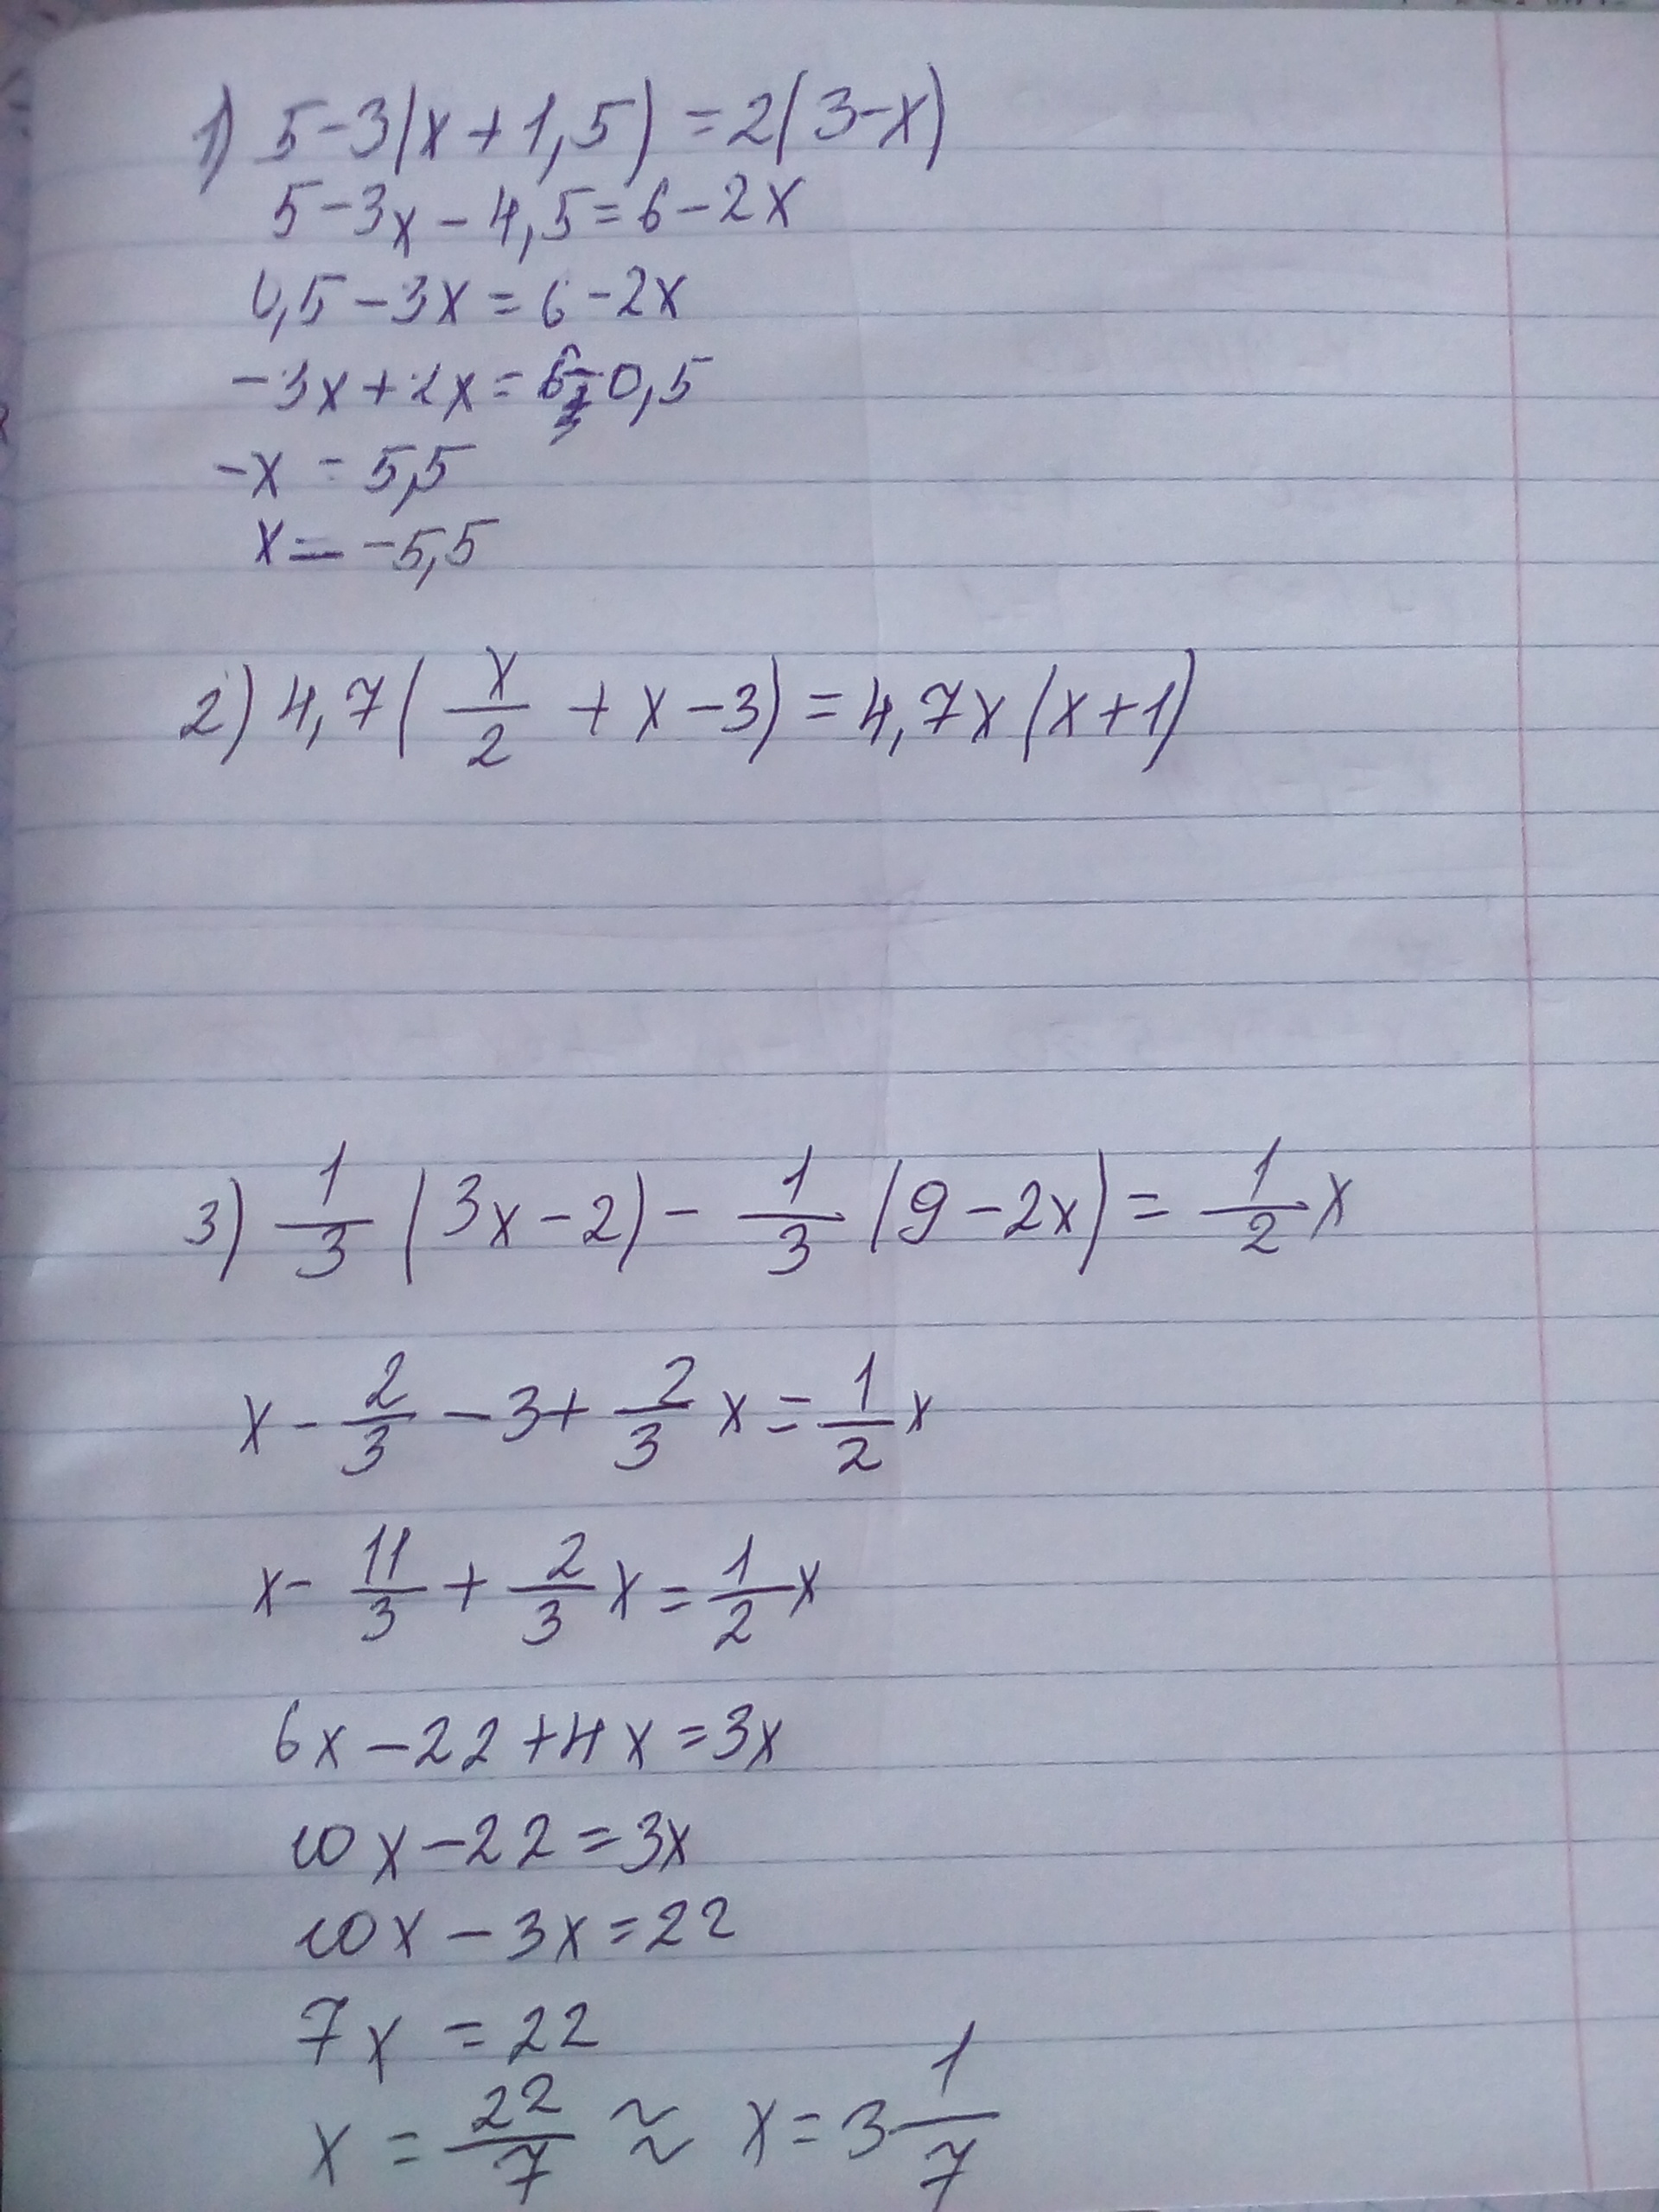 1) 5-3(x+1,5)=2(3-x)
5-3x-4,5=6-2x
0,5-3x=6-2x
-3x+2x=6-0,5
-x=5,5
x=-5,5
2) 4,7(x/2+x-3)=4,7x(x+1)
3) 1/3(3x-2)-1/3(9-2x)=1/2x
x-2/3-3+2/3x=1/2x
x-11/3+2/3x=1/2x
6x-22+4x=3x
10x-22=3x
10x-3x=22
7x=22
x=22/7≈x=3 1/7